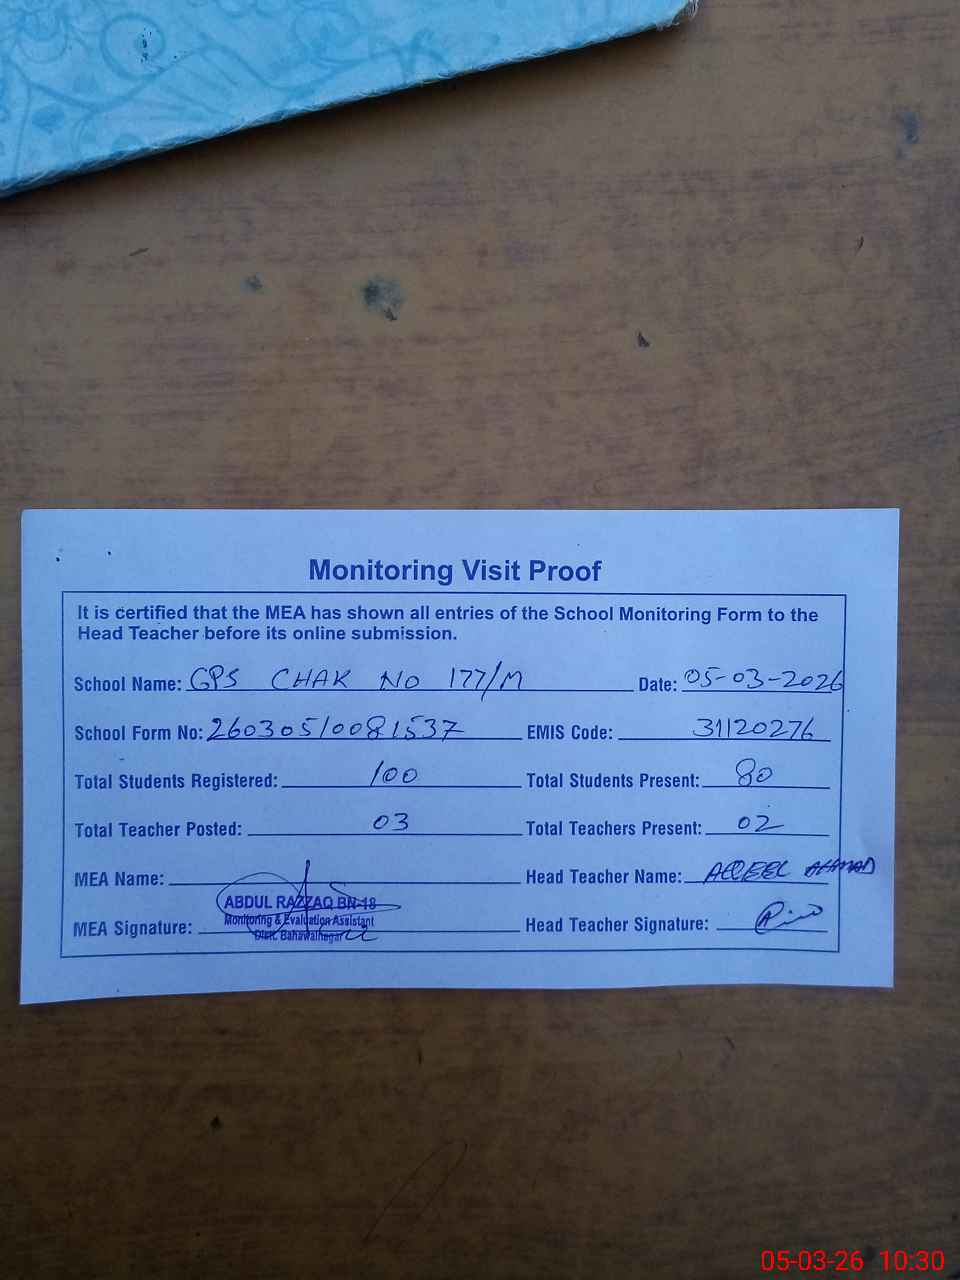 Monitoring Visit Proof
It is certified that the MEA has shown all entries of the School Monitoring Form to the
Head Teacher before its online submission.
School Name: GPS CHAK NO 177/M Date: 05-03-2026
School Form No: 26030510081537 EMIS Code: 31120276
Total Students Registered: 100 Total Students Present: 80
Total Teacher Posted: 03 Total Teachers Present: 02
MEA Name: Head Teacher Name: AQEEL AHMAD
ABDUL RAZZAQ BN-18
Monitoring & Evaluation Assistant
Distt. Bahawalnagar
MEA Signature: Head Teacher Signature:
05-03-26 10:30